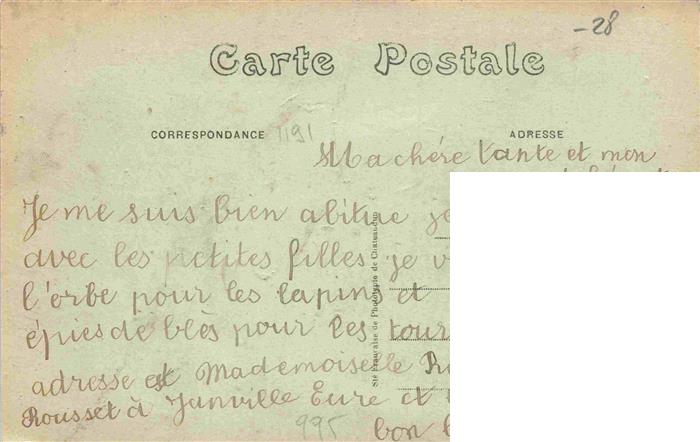 -28
Carte Postale
CORRESPONDANCE 1191 ADRESSE
Ma chére tante et mon
Je me suis bien abitue je
avec les petites filles je
l'erbe pour les lapins et
épies de blès pour les
adresse est Mademoiselle
Rousset à Janville Eure et
995 bon
Sté Française de Phototypie de Chateaudun